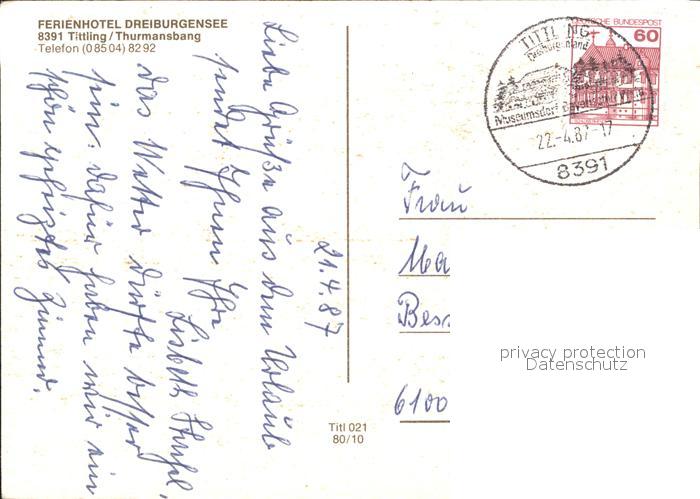 FERIENHOTEL DREIBURGENSEE
8391 Tittling / Thurmansbang
Telefon (0 85 04) 82 92
21.4.87
Liebe Grüße aus dem Urlaub
sendet Ihnen Ihre
Lisbeth
das Wetter dürfte besser
sein. dafür haben wir ein
schön geheiztes Zimmer.
Titl 021
80/10
DEUTSCHE BUNDESPOST
60
TITTLING
Dreiburgenland
Museumsdorf Bayerischer Wald
22.-4.87-17
8391
Frau
Ma
Bes
6100
privacy protection
Datenschutz